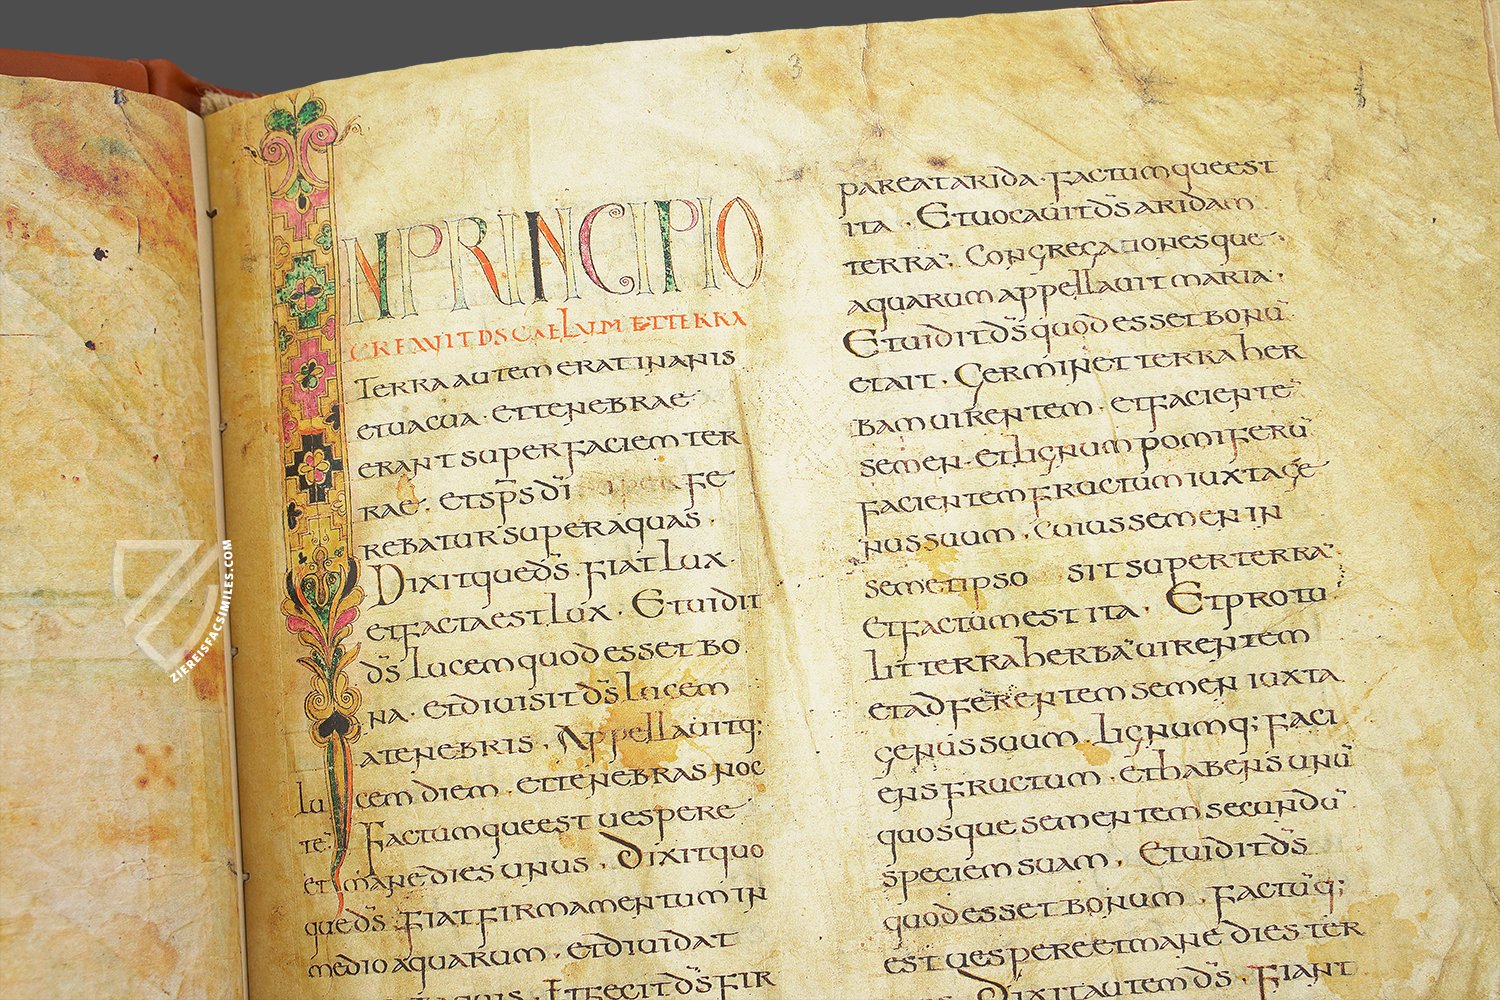 IN PRINCIPIO
CREAVIT D̄S CAELUM ET TERRA
Terra autem erat inanis
et uacua · et tenebrae
erant super faciem ter
rae · et sp̄s d̄i fe
rebatur super aquas ·
Dixitque d̄s · fiat lux ·
et facta est lux · Et uidit
d̄s lucem quod esset bo
na · et diuisit d̄s lucem
a tenebris · Appellauitq;
lucem diem · et tenebras noc
te · Factumque est uespere
et mane dies unus · Dixit quo
que d̄s · fiat firmamentum in
medio aquarum · et diuidat
Et fecit d̄s fir
3
pareat arida · factumque est
ita · Et uocauit d̄s aridam
terra · Congregationesque
aquarum appellauit maria ·
Et uidit d̄s quod esset bonū
et ait · Germinet terra her
bam uirentem · et faciente
semen · et lignum pomiferū
facientem fructum iuxta ge
nus suum · cuius semen in
semetipso sit super terra ·
et factum est ita · Et protu
lit terra herbā uirentem
et adferentem semen iuxta
genus suum · lignumq; faci
ens fructum · et habens unū
quosque sementem secundū
speciem suam · Et uidit d̄s
quod esset bonum · factūq;
est uespere et mane dies ter
Dixit autem d̄s · fiant
ZIEREISFACSIMILES.COM